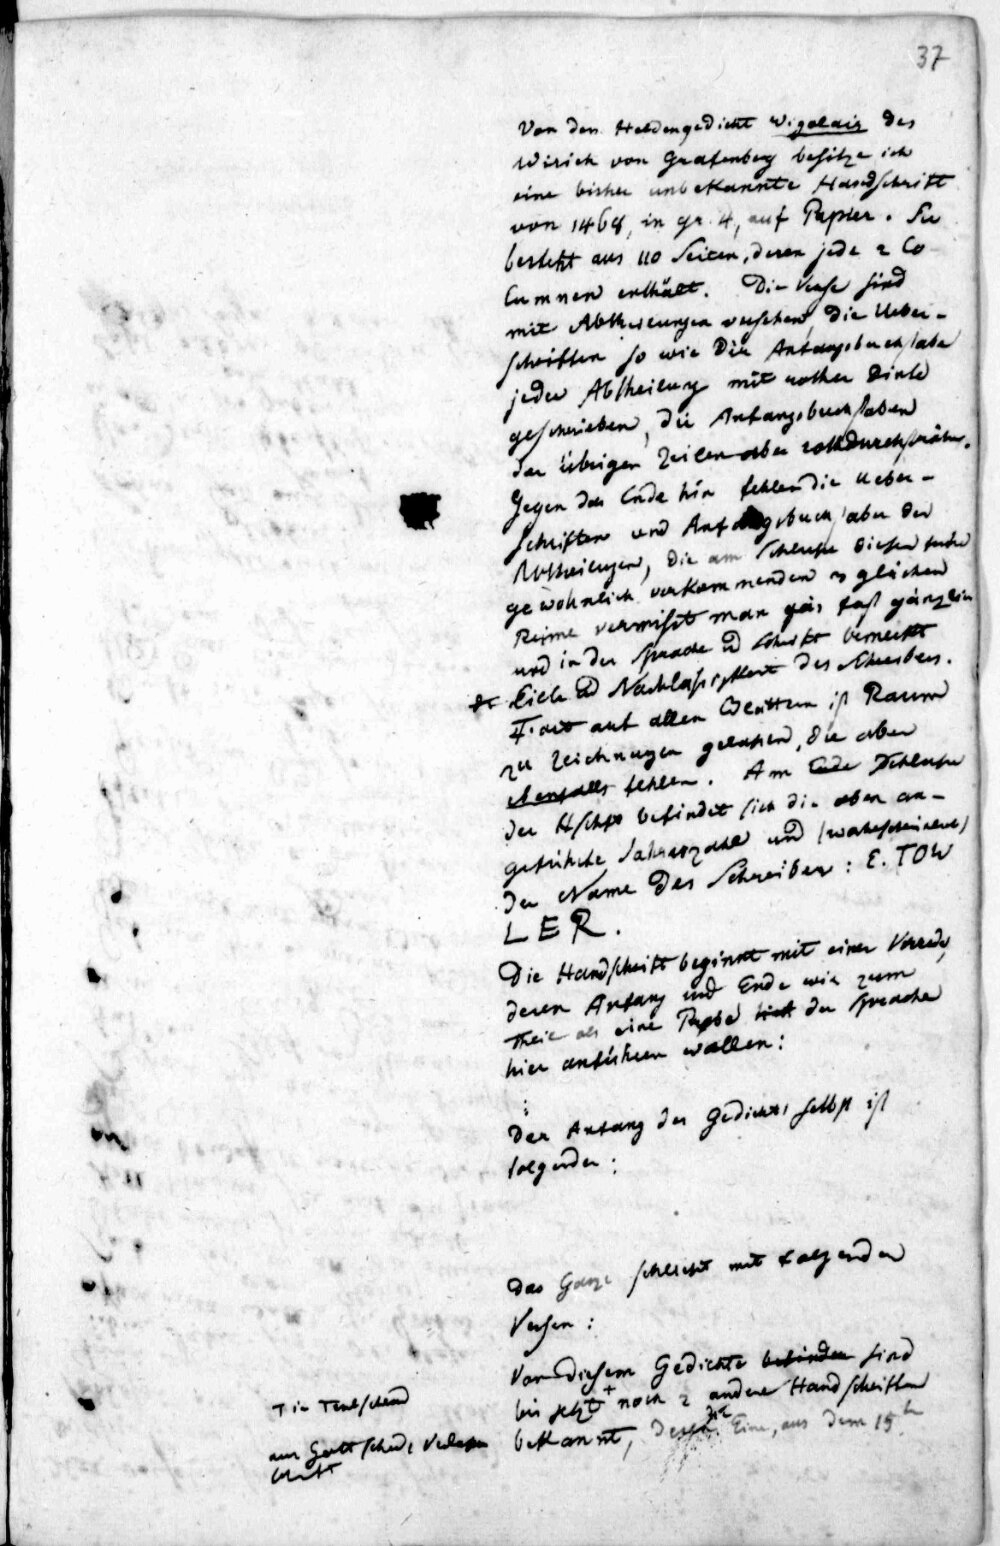 37
Von dem Heldengedicht Wigolais des
Wirich von Grafenberg besitze ich
eine bisher unbekannte Handschrift
von 1468, in gr. 4, auf Papier. Sie
besteht aus 110 Seiten, deren jede 2 Co-
lumnen enthält. Die Verse sind
mit Abtheilungen versehen, die Ueber-
schriften so wie die Anfangsbuchstaben
jeder Abtheilung mit rother Dinte
geschrieben, die Anfangsbuchstaben
der übrigen Zeilen aber roth durchstrichen.
Gegen das Ende hin fehlen die Ueber-
schriften und Anfangsbuchstaben der
Abtheilungen, die am Schlusse dieser
gewöhnlich vorkommenden 3 gleichen
Reime vermißt man fast gänzlich
und in der Sprache und Schrift bemerkt
Eile und Nachlaßigkeit des Schreibers.
Fast auf allen Blättern ist Raum
zu Zeichnungen gelaßen, die aber
ebenfalls fehlen. Am Ende Schlusse
der Hschr befindet sich die oben an-
geführte Jahrszahl und (wahrscheinlich)
der Name des Schreibers: E. TOW
LER.
Die Handschrift beginnt mit einer Vorrede,
deren Anfang und Ende wir zum
Theil als eine Probe der Sprache
hier anführen wollen:
:
Der Anfang des Gedichts selbst ist
folgender:
Das Ganze schließt mit folgenden
Versen:
Von diesem Gedichte befinden sind
bis jetzt + noch 2 andere Handschriften
bekannt, die Eine, aus dem 15
in Teutschland
aus Gottscheds Verlassen
schaft